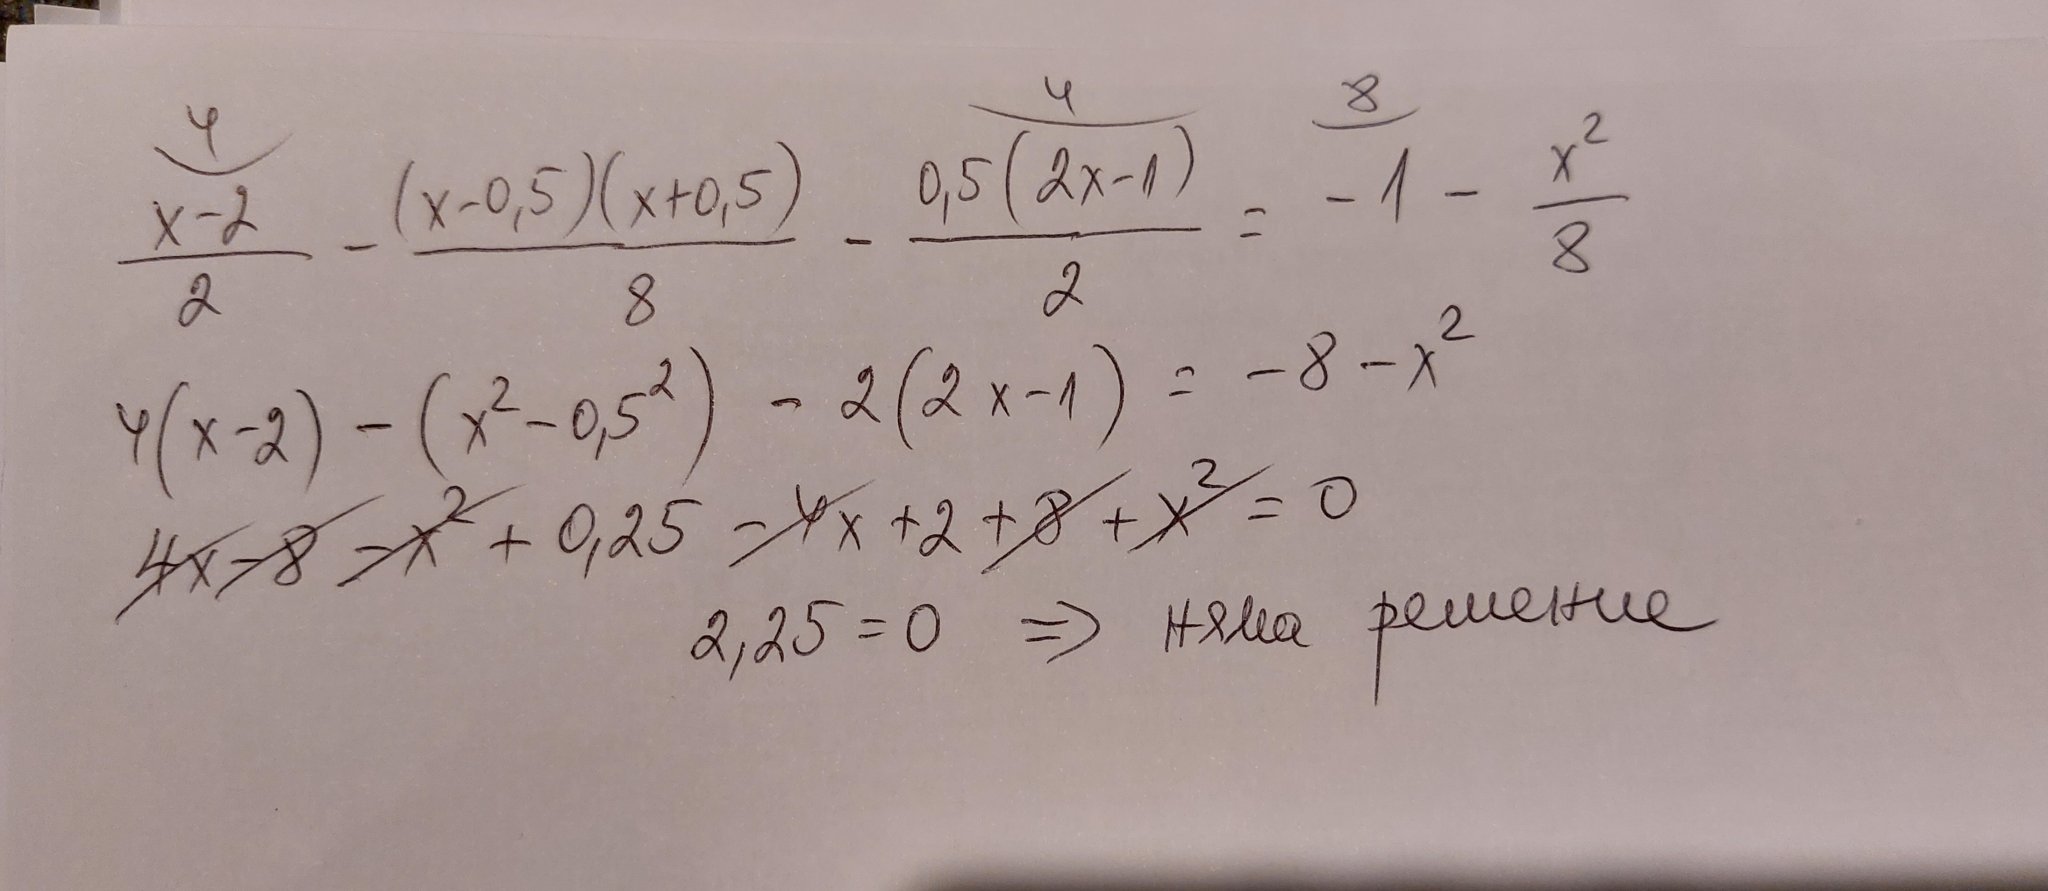 4 4 8
x-2 / 2 - (x-0,5)(x+0,5) / 8 - 0,5(2x-1) / 2 = -1 - x² / 8
4(x-2) - (x²-0,5²) - 2(2x-1) = -8-x²
4x-8-x²+0,25-4x+2+8+x²=0
2,25=0 => няма решение